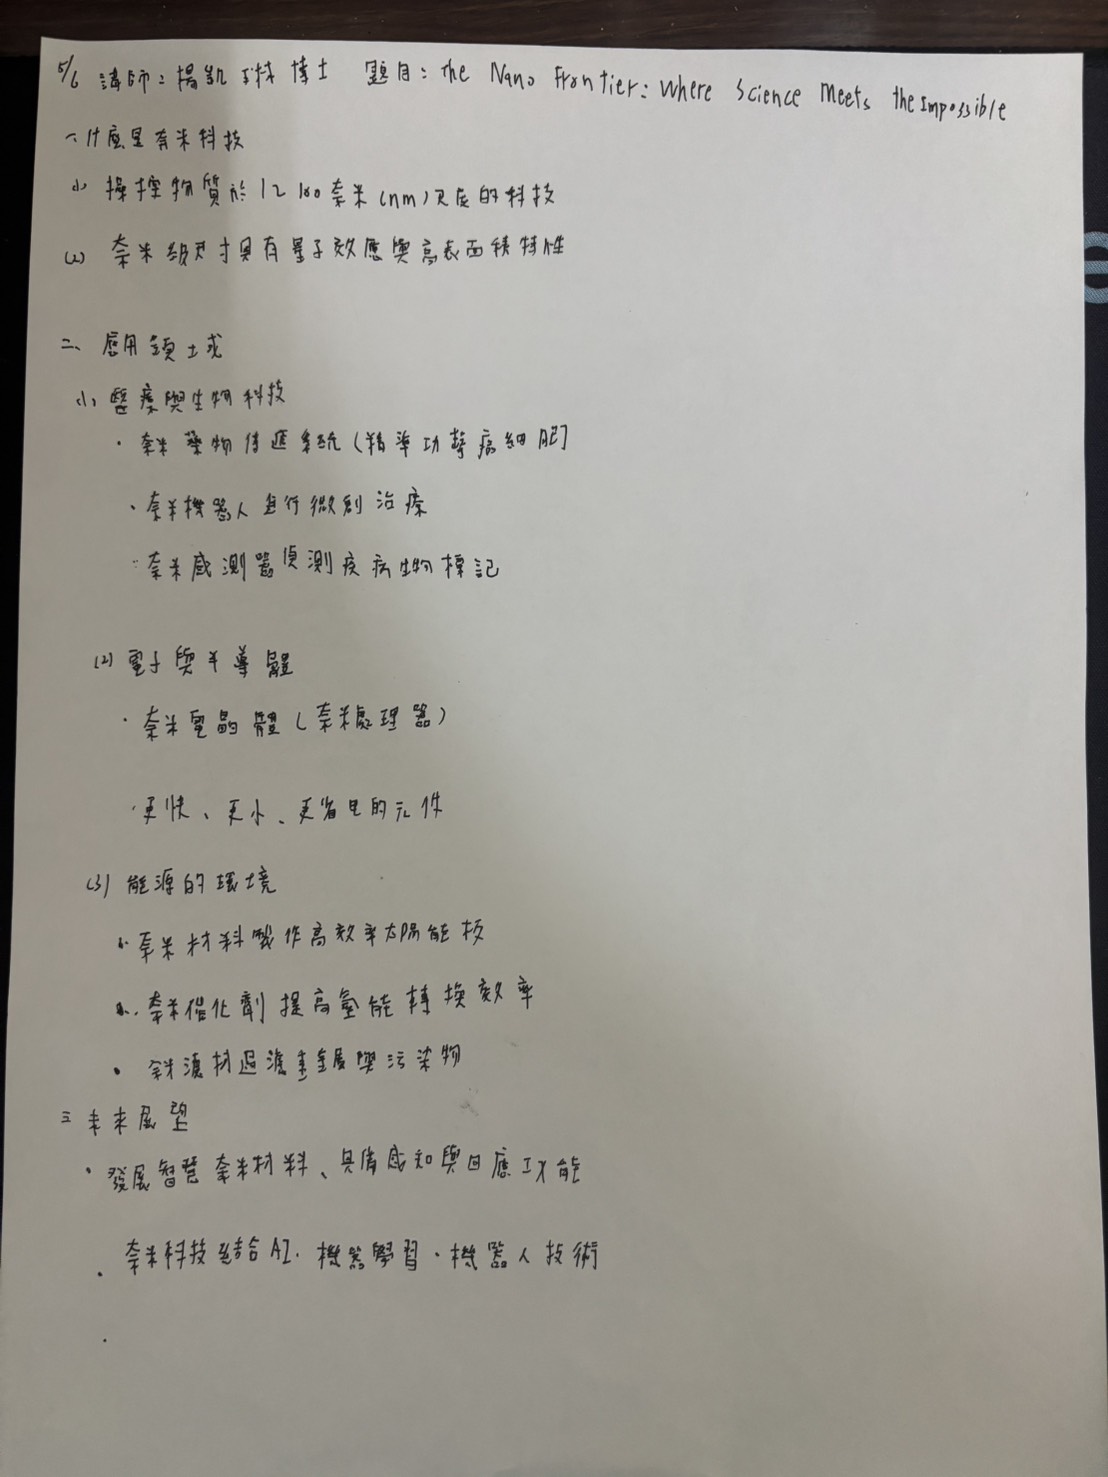 5/6 講師：楊凱 博士 題目：the Nano Frontier: Where Science Meets the Impossible
一、什麼是奈米科技
(1) 操控物質於1~100奈米(nm)尺度的科技
(2) 奈米級尺寸具有量子效應與高表面積特性
二、應用領域
(1) 醫療與生物科技
· 奈米藥物傳遞系統(精準功擊病細胞)
· 奈米機器人進行微創治療
· 奈米感測器偵測疾病生物標記
(2) 電子與半導體
· 奈米電晶體(奈米處理器)
· 更快、更小、更省电的元件
(3) 能源的環境
· 奈米材料製作高效率太陽能板
· 奈米催化劑提高氫能轉換效率
· 奈米濾材過濾重金屬與污染物
三 未來展望
· 發展智慧奈米材料、具備感知與自應功能
· 奈米科技結合AI. 機器學習·機器人技術
·